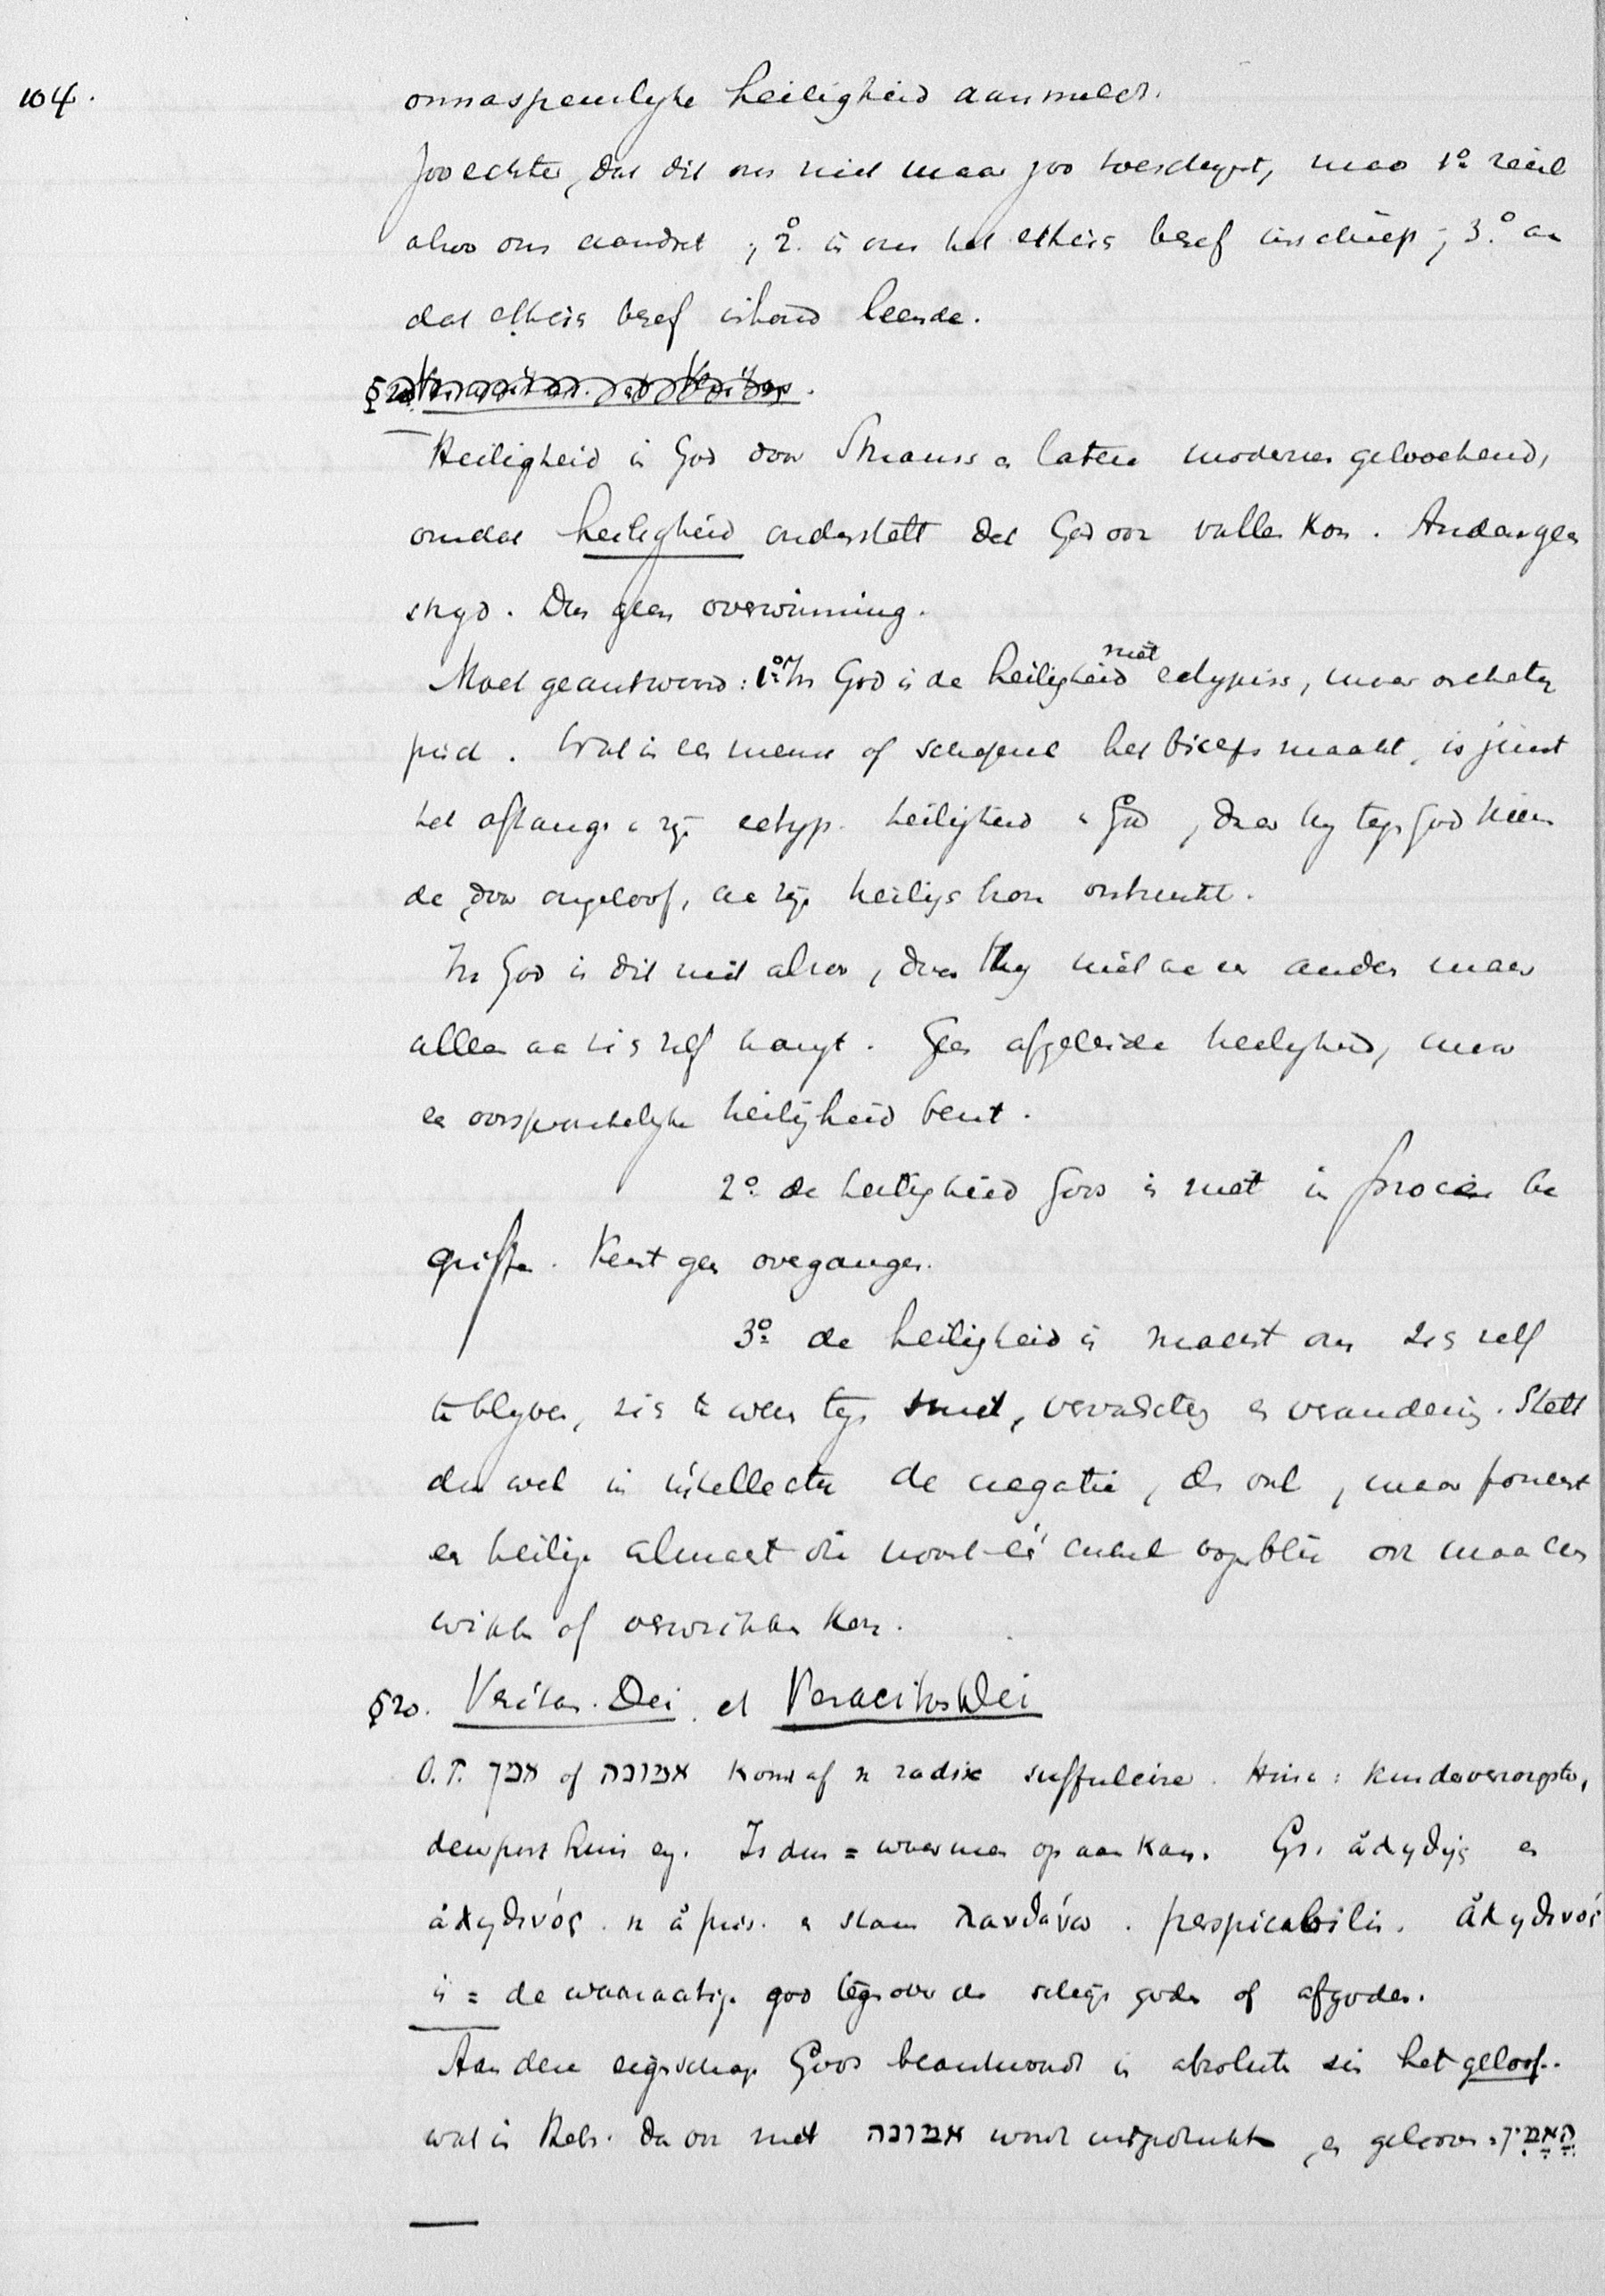 104.
onnaspeurlyke heiligheid aanmeldt.
Zoo echter, dat dit ons niet maar zoo toeschynt, maar 1º reëel
alzoo ons aandoet ; 2º in ons het ethisch besef inschiep ; 3º aan
dat ethisch besef inhoud leende.
§20.
Heiligheid in God door Strauss en latere modernen geloochend,
omdat heiligheid onderstelt dat God ook vallen kon. Anders geen
stryd. Dus geen overwinning.
Moet geantwoord: 1º In God is de heiligheid niet ectypisch, maar archety
pisch. Wat in een mensch of schepsel het besef maakt, is juist
het afhangen zijn ectyp. heiligheid van God, daar hy tegen God keer
de door ongeloof, aan zijn heiligh. bron ontrukt.
In God is dit niet alzoo, daar Hy niet aan een ander maar
alleen aan zich zelf hangt. Geen afgeleide heiligheid, maar
een oorspronkelyke heiligheid bezit.
2º de heiligheid Gods is niet in proces be
grepen. Kent geen overgangen.
3º de heiligheid is macht om zich zelf
te blyven, zich te weren tegen smet, vervalsching en verandering. Stelt
dus wel in intellectu de negatie, de onh, maar poneert
een heilige almacht die nooit één enkel oogenblik ook maar een
wikken of verwrikken kan.
§20. Veritas Dei et Veracitas Dei
O.T. אמן of אמונה komt af v radix suffulcire. Hinc: kindverzorgster,
deurpost huis eg. Is dus = waar men op aan kan. Gr. ἀληθής en
ἀληθινός. v ἀ priv. en stam λανθάνω. perspicabilis. ἀληθινός
is = de waarachtige god tegenover de schijn goden of afgoden.
Aan deze eigenschap Gods beantwoordt in absoluten zin het geloof.
wat in Hebr. dan ook met אמונה wordt uitgedrukt, en gelooven = הֶאֱמִין